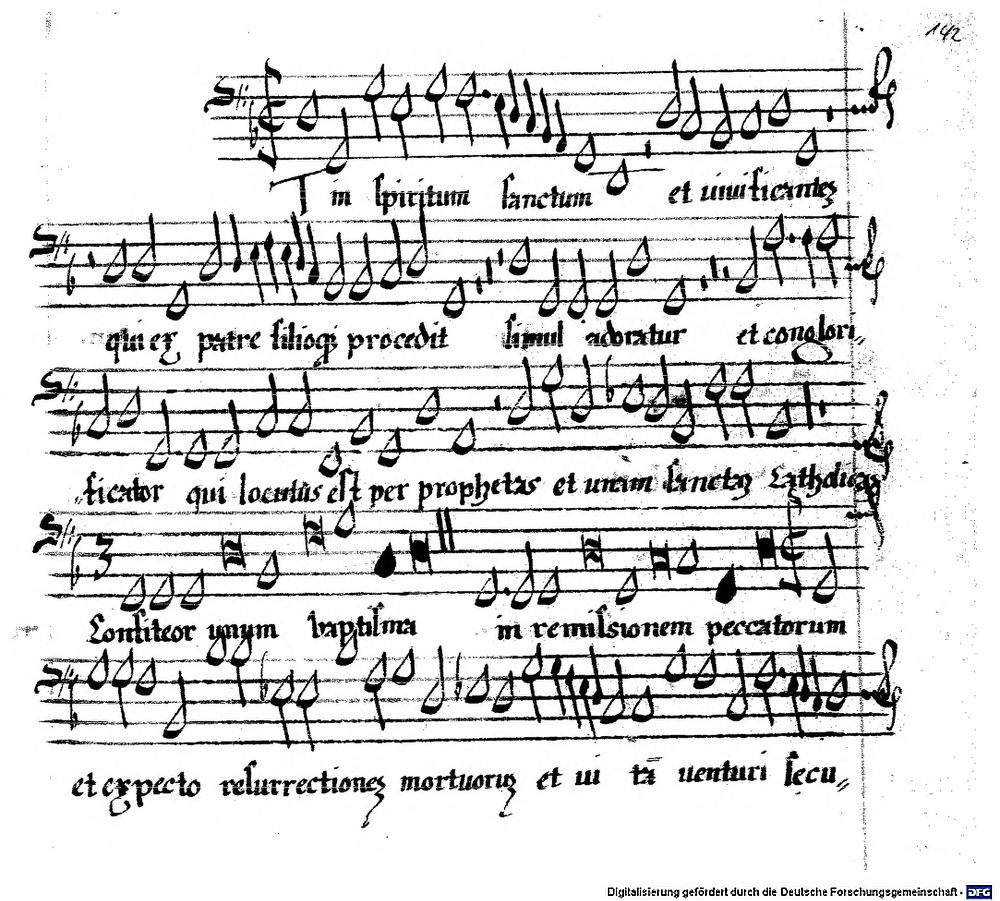 142
T in spiritum sanctum et uiuificantez
qui ex patre filioqz procedit simul adoratur et conglori„
„ficator qui locutus est per prophetas et unam sanctaz Catholicaz
3
Confiteor unum baptisma in remissionem peccatorum
et expecto resurrectionez mortuoruz et ui tā uenturi secu„
Digitalisierung gefördert durch die Deutsche Forschungsgemeinschaft - DFG